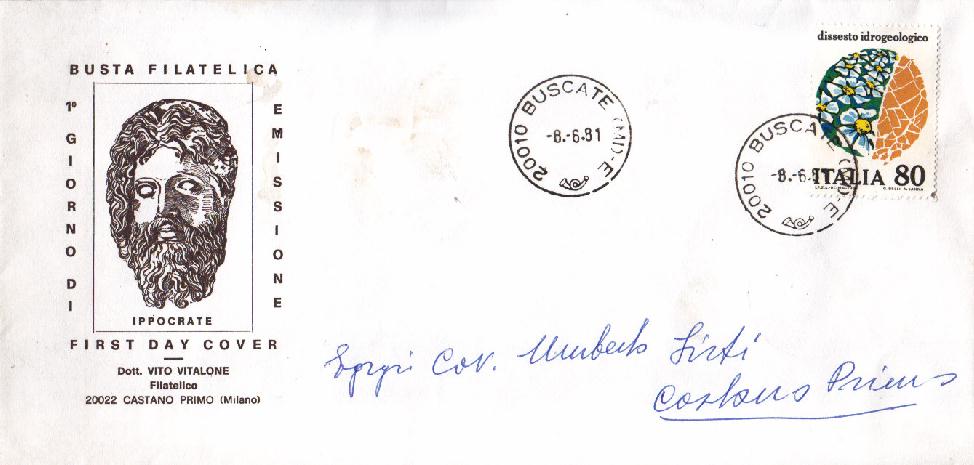 BUSTA FILATELICA
1º GIORNO DI
EMISSIONE
IPPOCRATE
FIRST DAY COVER
Dott. VITO VITALONE
Filatelico
20022 CASTANO PRIMO (Milano)
20010 BUSCATE (MI)-E
-8.-6.81
dissesto idrogeologico
ITALIA 80
20010 BUSCATE (MI)-E
-8.-6.81
Cav. Umberto
Castano Primo